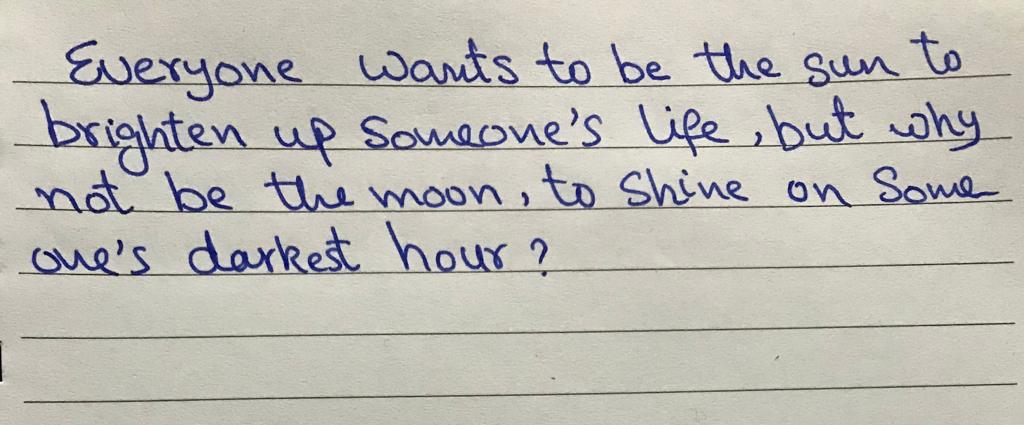 Everyone wants to be the sun to
brighten up Someone's life, but why
not be the moon, to Shine on Some
one's darkest hour?